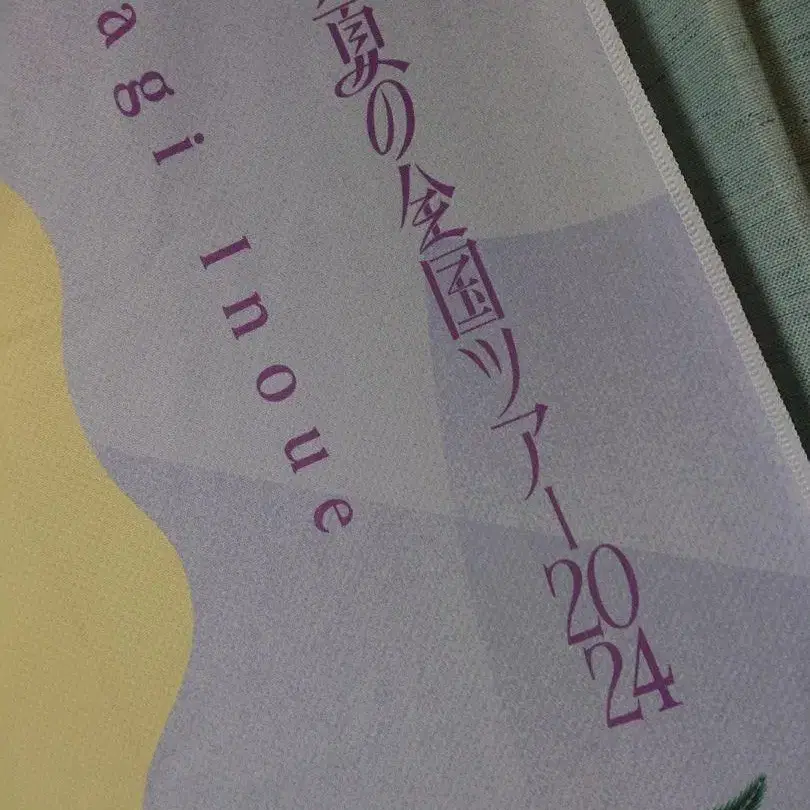 夏の全国ツアー2024
agi Inoue